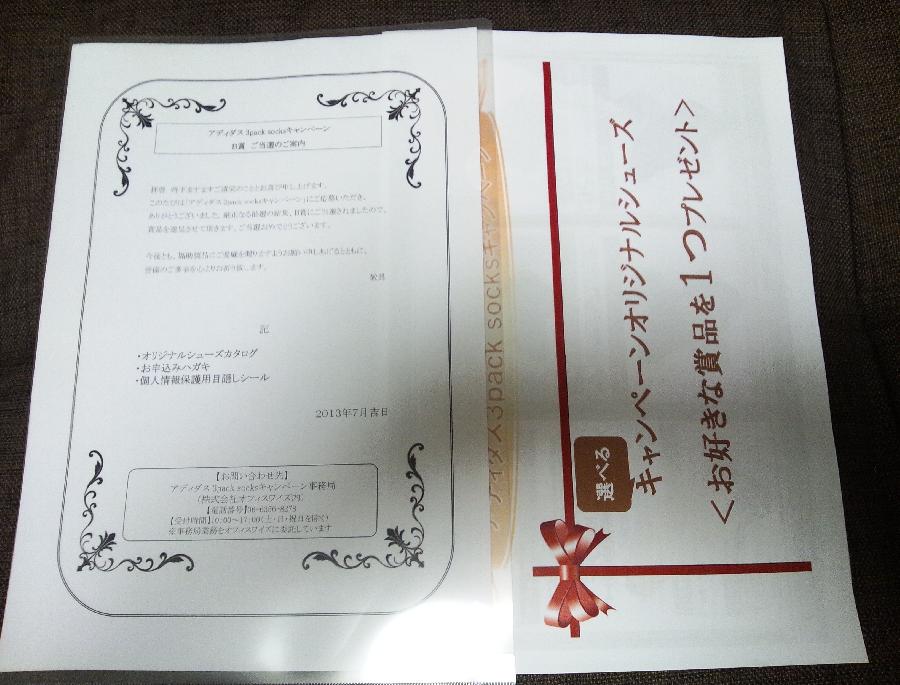 アディダス 3pack socksキャンペーン
B賞 ご当選のご案内
拝啓 時下ますますご清栄のこととお喜び申し上げます。
このたびは「アディダス 3pack socksキャンペーン」にご応募いただき、
ありがとうございました。厳正なる抽選の結果、B賞にご当選されましたので、
賞品を進呈させて頂きます。ご当選おめでとうございます。
今後とも、協助商品にご愛顧を賜りますようお願い申し上げるとともに、
皆様のご多幸を心よりお祈り致します。
敬具
記
・オリジナルシューズカタログ
・お申込みハガキ
・個人情報保護用目隠しシール
2013年7月吉日
【お問い合わせ先】
アディダス 3pack socksキャンペーン事務局
(株式会社オフィスワイズ内)
【電話番号】06-6356-8278
【受付時間】10:00～17:00(土・日・祝日を除く)
※事務局業務をオフィスワイズに委託しています
アディダス 3pack socksキャンペーン
選べる
キャンペーンオリジナルシューズ
＜お好きな賞品を1つプレゼント＞